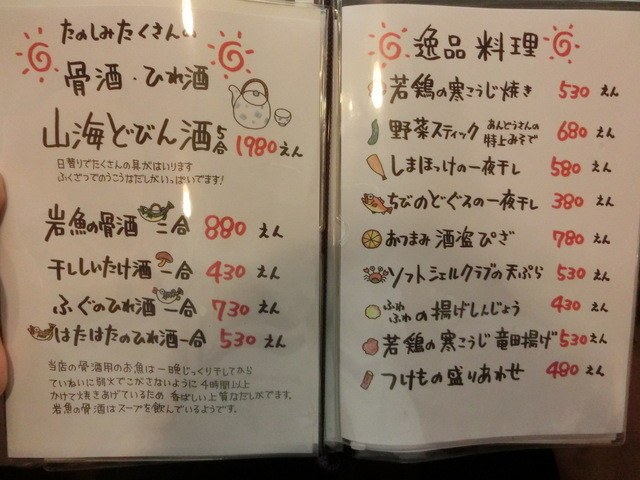 たのしみたくさんの
骨酒・ひれ酒
山海どびん酒 5合 1980えん
日替りでたくさんの具がはいります
ふくざつでのうこうなだしがいっぱいでます!
岩魚の骨酒 二合 880 えん
干ししいたけ酒 一合 430 えん
ふぐのひれ酒 一合 730 えん
はたはたのひれ酒一合 530 えん
当店の骨酒用のお魚は一晩じっくり干してから
ていねいに弱火でこがさないように4時間以上
かけて焼きあげているため 香ばしい上質なだしがでます。
岩魚の骨酒はスープを飲んでいるようです。
逸品料理
若鶏の寒こうじ焼き 530 えん
野菜スティック あんどうさんの特上みそで 680 えん
しまほっけの一夜干し 580 えん
ちびのどぐろの一夜干し 380 えん
おつまみ酒盗ぴざ 780 えん
ソフトシェルクラブの天ぷら 530 えん
ふわふわの揚げしんじょう 430 えん
若鶏の寒こうじ竜田揚げ 530 えん
つけもの盛りあわせ 480 えん